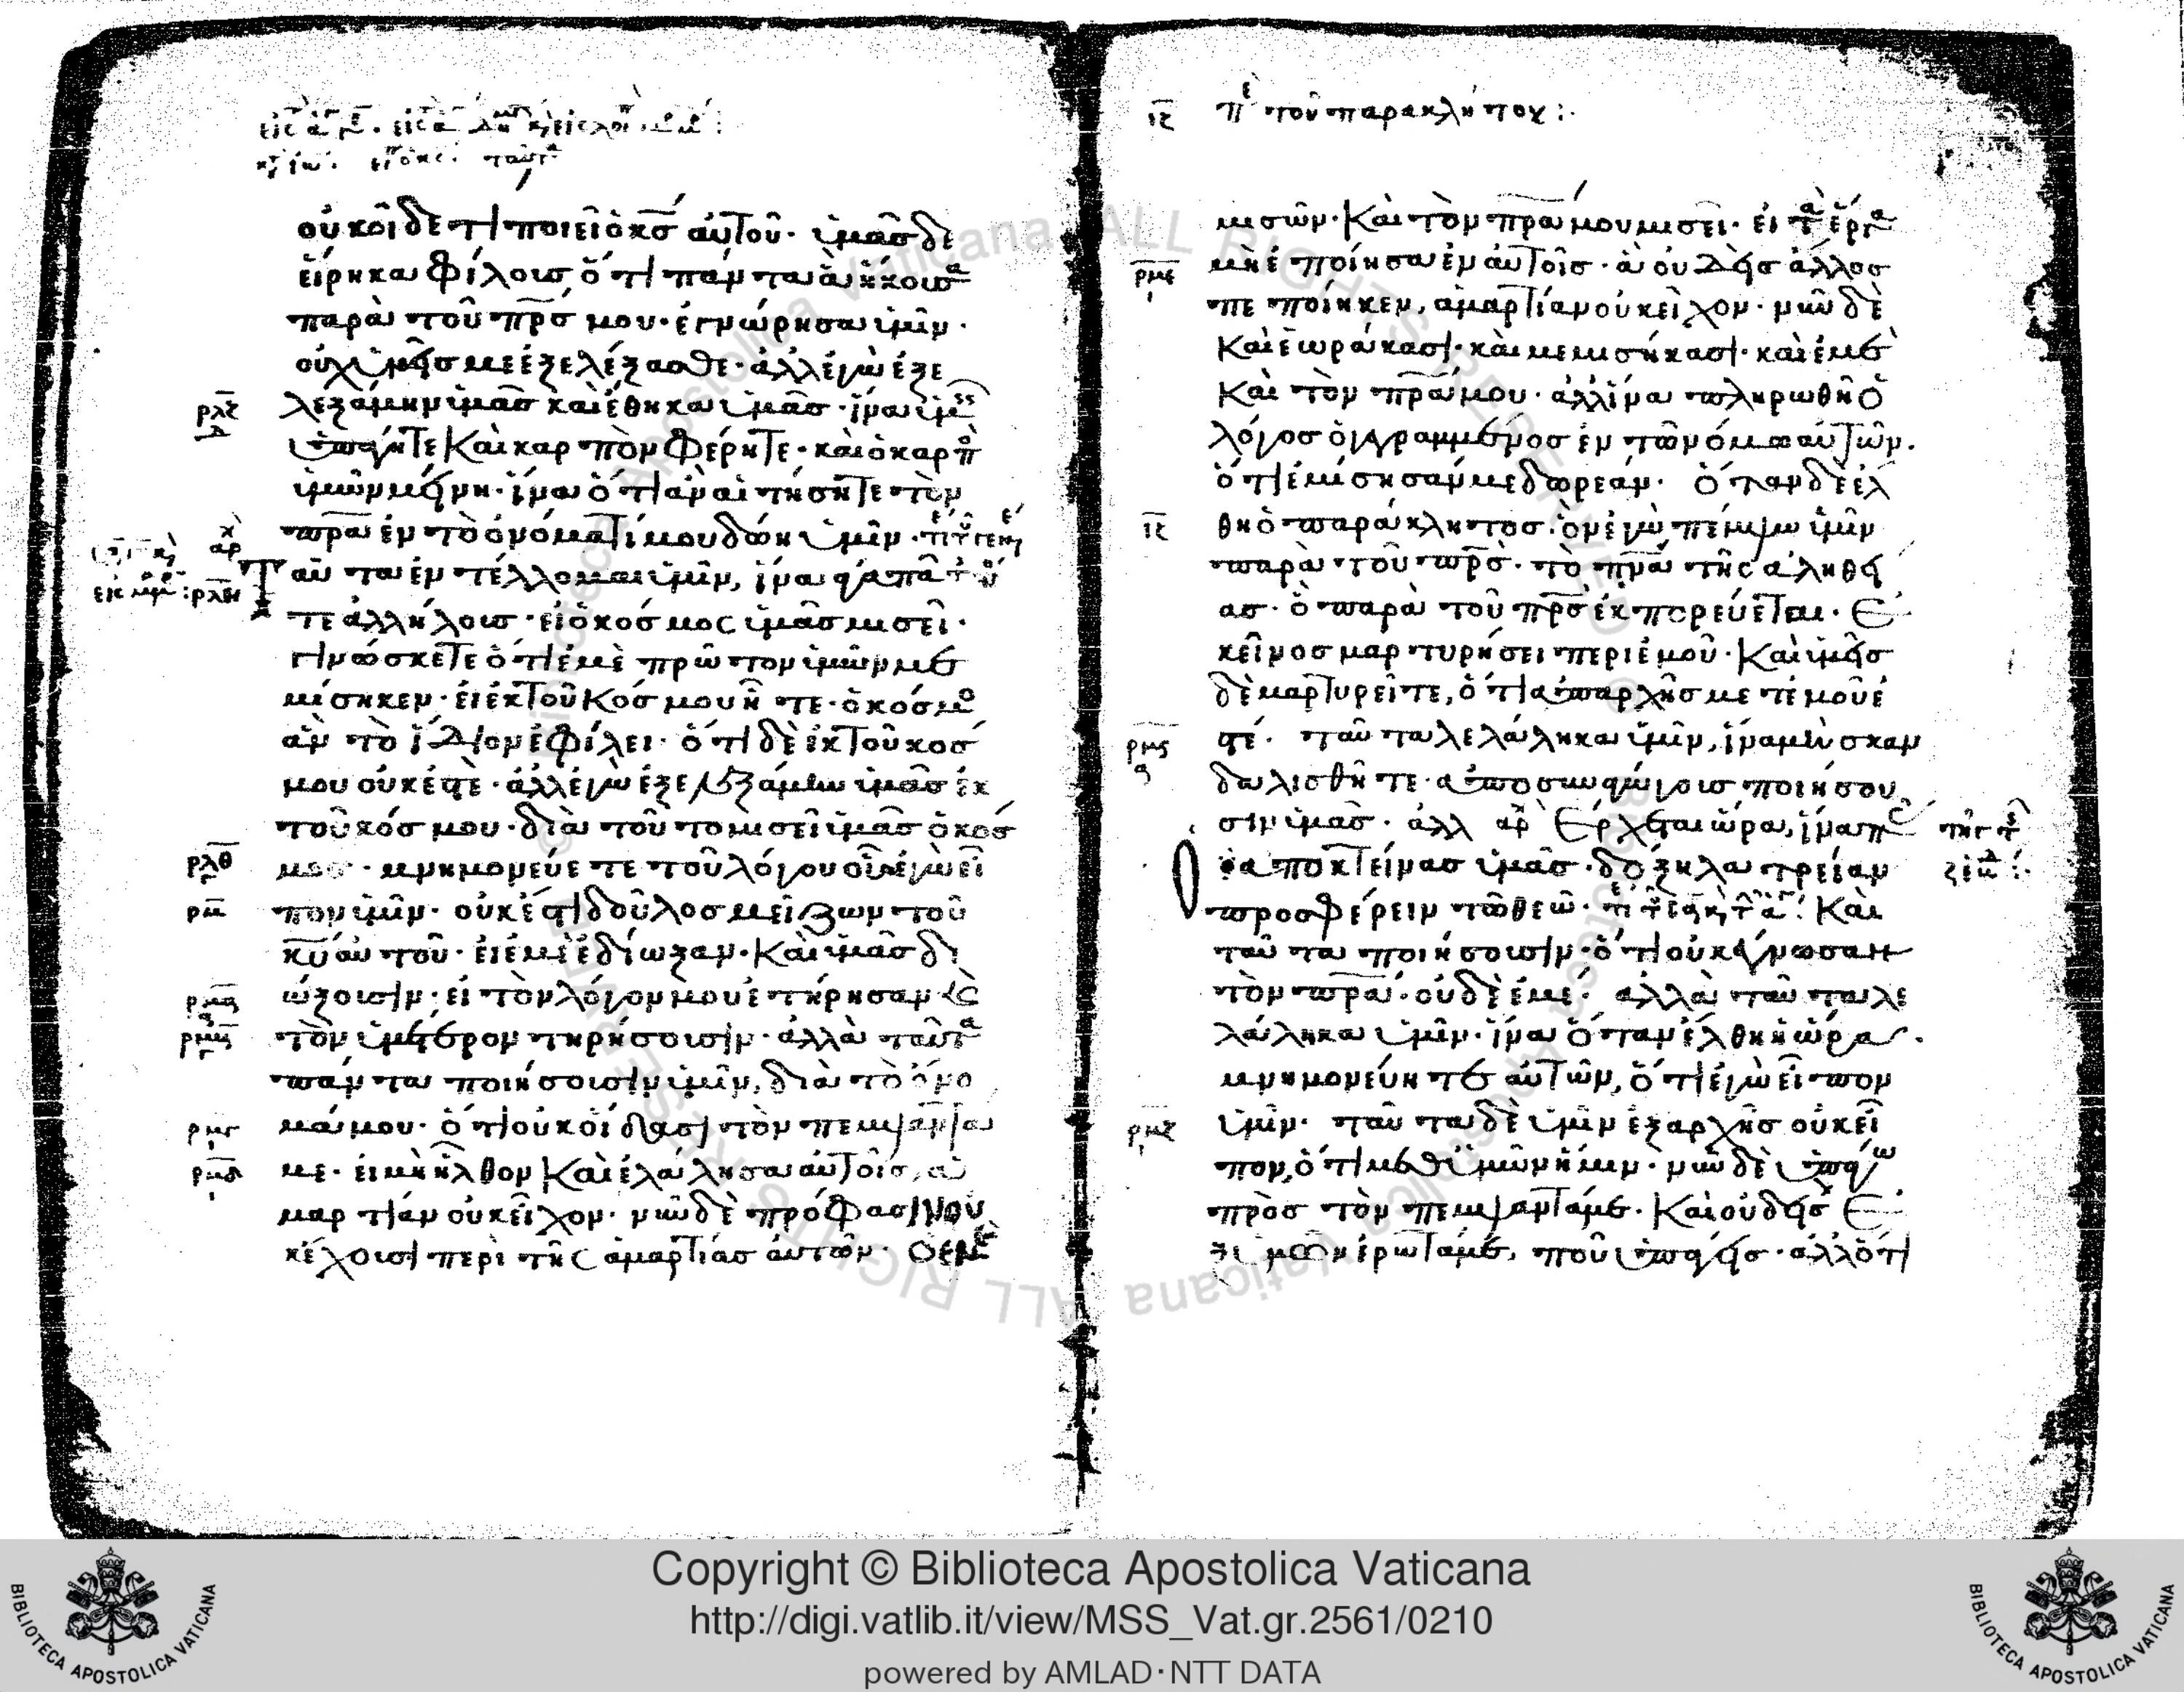 οὐκ οἶδε τί ποιεῖ ὁ κς̅ αὐτοῦ· ὑμᾶς δὲ
εἴρηκα φίλοις, ὅτι πάντα ἃ ἤκουσα
παρὰ τοῦ πρ̅ς μου· ἐγνώρησα ὑμῖν·
οὐχ ὑμεῖς με ἐξελέξασθε· ἀλλ' ἐγὼ ἐξε
ρλζ λεξάμην ὑμᾶς καὶ ἔθηκα ὑμᾶς· ἵνα ὑμεῖς
ὑπάγητε καὶ καρπὸν φέρητε· καὶ ὁ καρπὸ
ὑμῶν μένη· ἵνα ὅτι ἂν αἰτήσητε τὸν
πρ̅α ἐν τὸ ὀνόματί μου δώη ὑμῖν·
αρχ ρλη Ταῦτα ἐντέλλομαι ὑμῖν, ἵνα ἀγαπᾶ
τε ἀλλήλοις· εἰ ὁ κόσμος ὑμᾶς μισεῖ·
γινώσκετε ὅτι ἐμὲ πρῶτον ὑμῶν με
μίσηκεν· εἰ ἐκ τοῦ κόσμου ἦτε· ὁ κόσμο
ἂν τὸ ἴδιον ἐφίλει· ὅτι δὲ ἐκ τοῦ κόσ
μου οὐκ ἐστὲ· ἀλλ' ἐγὼ ἐξελεξάμην ὑμᾶς ἐκ
τοῦ κόσμου· διὰ τοῦτο μισεῖ ὑμᾶς ὁ κόσ
ρλθ μος· μνημονεύετε τοῦ λόγου οὗ ἐγὼ εἶ
ρμ πον ὑμῖν· οὐκ ἔστι δοῦλος μείζων τοῦ
κυ̅ αὐτοῦ· εἰ ἐμὲ ἐδίωξαν· καὶ ὑμᾶς δι
ρμα ώξουσιν· εἰ τὸν λόγον μου ἐτήρησαν καὶ
ρμβ τὸν ὑμέτερον τηρήσουσιν· ἀλλὰ ταῦτα
πάντα ποιήσουσιν ὑμῖν, διὰ τὸ ὄνο
ρμγ μά μου· ὅτι οὐκ οἴδασι τὸν πέμψαντά
ρμδ με· εἰ μὴ ἦλθον καὶ ἐλάλησα αὐτοῖς, ἁ
μαρτίαν οὐκ εἶχον· νῦν δὲ πρόφασιν οὐ
κ ἔχουσι περὶ τῆς ἁμαρτίας αὐτῶν· Ὁ ἐμὲ
ιζ πε τοῦ παρακλήτου:·
μισῶν· καὶ τὸν πρ̅α μου μισεῖ· εἰ τὰ ἔργα
ρμε μὴ ἐποίησα ἐν αὐτοῖς· ἃ οὐδεὶς ἄλλος
πεποίηκεν, ἁμαρτίαν οὐκ εἶχον· νῦν δὲ
καὶ ἑωράκασι· καὶ μεμισήκασι· καὶ ἐμὲ
καὶ τὸν πρ̅α μου· ἀλλ' ἵνα πληρωθῆ ὁ
λόγος ὁ γεγραμμένος ἐν τῶ νόμω αὐτῶν·
ὅτι ἐμίσησάν με δωρεάν· ὅταν δὲ ἔλ
ιζ θη ὁ παράκλητος· ὃν ἐγὼ πέμψω ὑμῖν
παρὰ τοῦ πρ̅ς· τὸ πν̅α τῆς ἀληθεί
ας· ὃ παρὰ τοῦ πρ̅ς ἐκπορεύεται· Ἐ
κεῖνος μαρτυρήσει περὶ ἐμοῦ· καὶ ὑμεῖς
δὲ μαρτυρεῖτε, ὅτι ἀπαρχῆς μετ' ἐμοῦ ἐ
ρμς στέ· ταῦτα λελάληκα ὑμῖν, ἵνα μὴ σκαν
δαλισθῆτε· ἀποσυναγώγους ποιήσου
σιν ὑμᾶς· ἀλλ' Ἔρχεται ὥρα, ἵνα πᾶς
ὁ ἀποκτείνας ὑμᾶς· δόξη λατρείαν
προσφέρειν τῶ θεῶ· Καὶ
ταῦτα ποιήσουσιν· ὅτι οὐκ ἔγνωσαν
τὸν πρ̅α· οὐδὲ ἐμέ· ἀλλὰ ταῦτα λε
λάληκα ὑμῖν· ἵνα ὅταν ἔλθη ἡ ὥρα·
μνημονεύητε αὐτῶν, ὅτι ἐγὼ εἶπον
ρμζ ὑμῖν· ταῦτα δὲ ὑμῖν ἐξαρχῆς οὐκ εἶ
πον, ὅτι μεθ' ὑμῶν ἤμην· νῦν δὲ ὑπάγω
πρὸς τὸν πέμψαντά με· καὶ οὐδεὶς ἐ
ξ ὑμῶν ἐρωτᾶ με, ποῦ ὑπάγεις· ἀλλ' ὅτι
Copyright © Biblioteca Apostolica Vaticana
http://digi.vatlib.it/view/MSS_Vat.gr.2561/0210
powered by AMLAD·NTT DATA
BIBLIOTECA APOSTOLICA VATICANA
BIBLIOTECA APOSTOLICA VATICANA